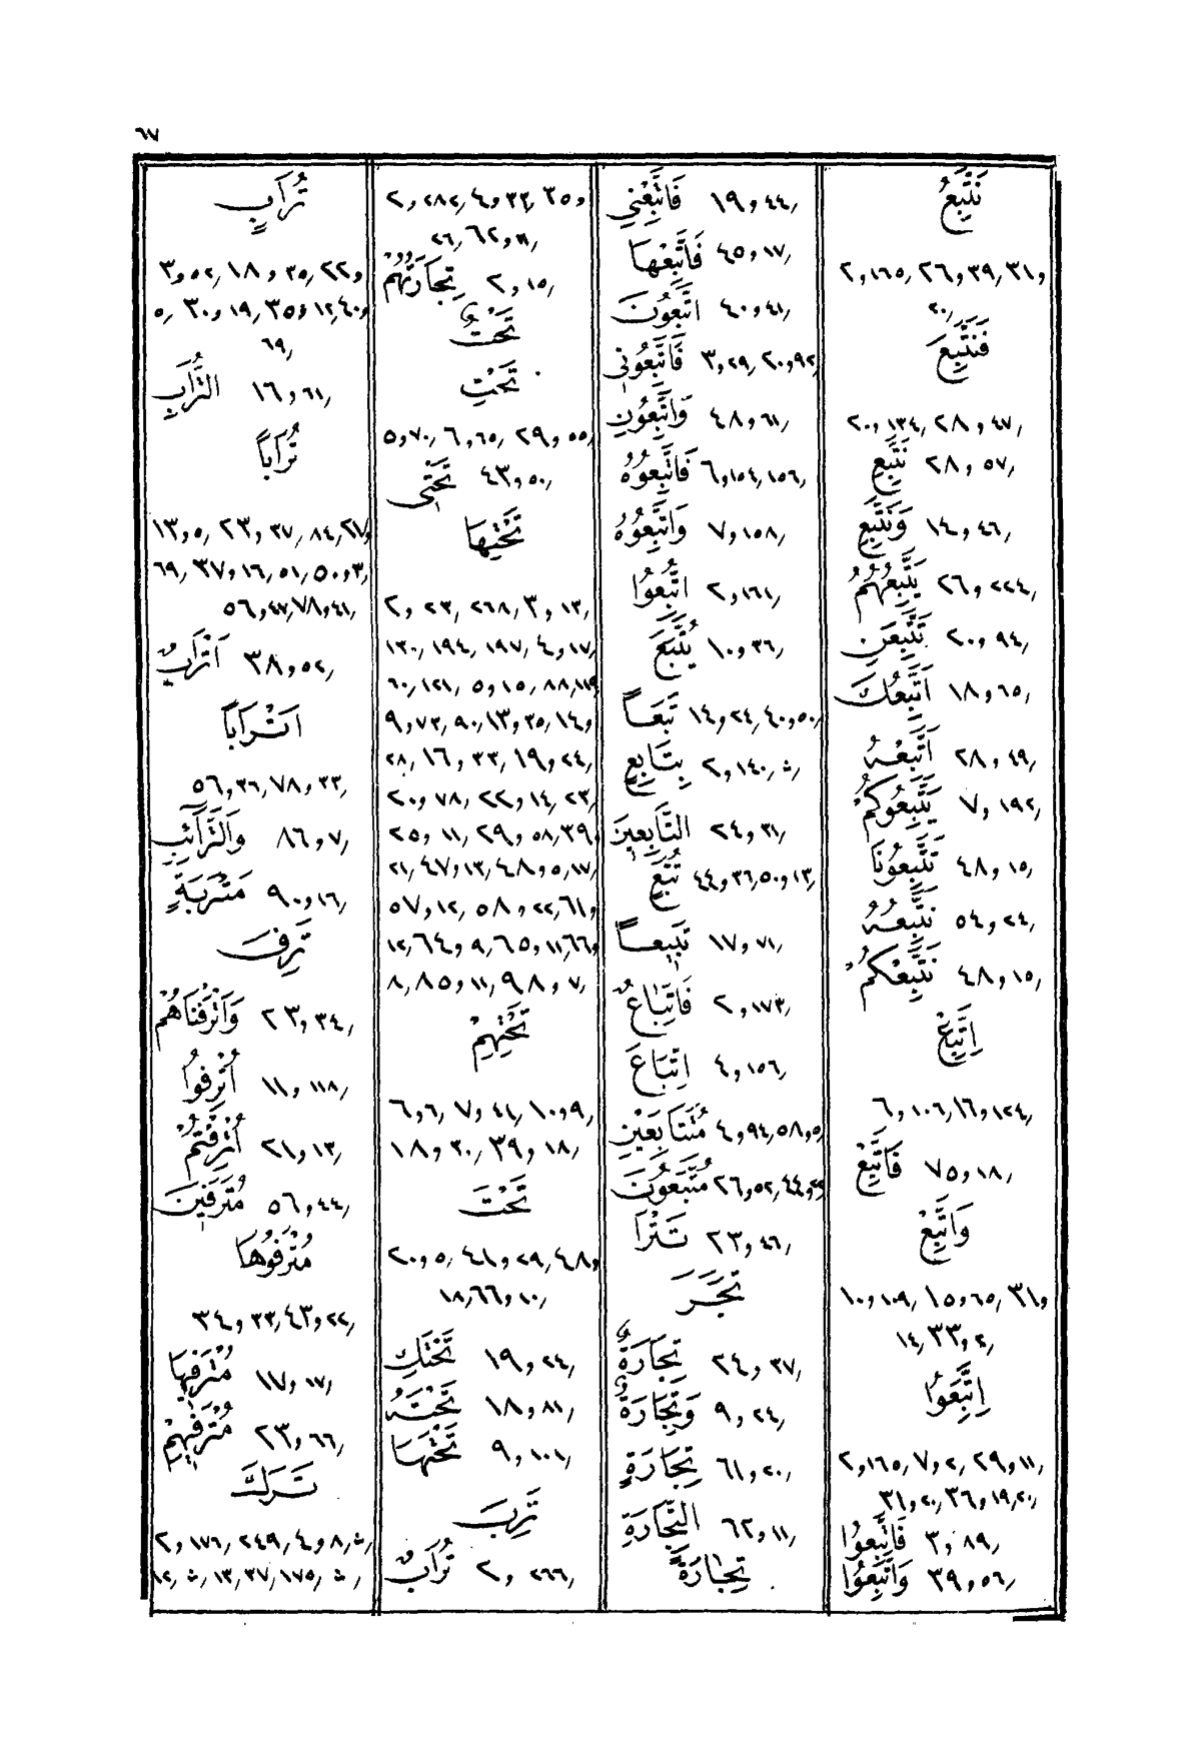 ٦٧
نَتَّبِعُ
٢و١٦٥٫ ٢٦و٣٩٫ ٣١و
٢٠٫
فَنَتَّبِعَ
٢٠و١٣٤٫ ٢٨و٤٧٫
نَتَّبِعِ ٢٨و٥٧٫
وَنَتَّبِعِ ١٤و٤٦٫
يَتَّبِعُهُمُ ٢٦و٢٢٤٫
تَتَّبِعَنِ ٢٠و٩٤٫
اَتَّبِعُكَ ١٨و٦٥٫
اَتَّبِعْهُ ٢٨و٤٩٫
يَتَّبِعُوكُمْ ٧و١٩٢٫
تَتَّبِعُونَا ٤٨و١٥٫
نَتَّبِعُهُ ٥٤و٢٤٫
نَتَّبِعْكُمْ ٤٨و١٥٫
اِتَّبِعْ
٦و١٠٦٫ ١٦و١٢٤٫
فَاتَّبِعْ ٧٥و١٨٫
وَاتَّبِعْ
١٠و١٠٩٫ ١٥و٦٥٫ ٣١و
١٤٫ ٣٣و٢٫
اِتَّبِعُوا
٢و١٦٥٫ ٧و٢٫ ٢٩و١١٫
٣١و٢٠٫ ٣٦و١٩٫٢٠٫
فَاتَّبِعُوا ٣و٨٩٫
وَاتَّبِعُوا ٣٩و٥٦٫
فَاتَّبِعْنِي ١٩و٤٤٫
فَاتَّبِعْهَا ٤٥و١٧٫
اتَّبِعُونَ ٤٠و٤١٫
فَاتَّبِعُونِي ٣و٢٩٫ ٢٠و٩٢٫
وَاتَّبِعُونِ ٤٨و٦١٫
فَاتَّبِعُوهُ ٦و١٥٤٫ ١٥٦٫
وَاتَّبِعُوهُ ٧و١٥٨٫
اتُّبِعُوا ٢و١٦١٫
يُتَّبَعَ ١٠و٣٦٫
تَبَعًا ١٤و٢٤٫ ٤٠و٥٠٫
بِتَابِعٍ ٢و١٤٠٫ ث٫
التَّابِعِينَ ٢٤و٣١٫
تُبَّعٍ ٤٤و٣٦٫ ٥٠و١٣٫
تَبِيعًا ١٧و٧١٫
فَاتِّبَاعٌ ٢و١٧٣٫
اتِّبَاعَ ٤و١٥٦٫
مُتَتَابِعَيْنِ ٤و٩٤٫ ٥٨و٥
مُتَّبَعُونَ ٢٦و٥٢٫ ٤٤و٢٩
تَتْرَا ٢٣و٤٦٫
تَجَرَ
تِجَارَةٌ ٢٤و٣٧٫
وَتِجَارَةٌ ٩و٢٤٫
تِجَارَةٍ ٦١و٢٠٫
التِّجَارَةِ ٦٢و١١٫
تِجَارَةً
٢و٢٨٢٫ ٤و٣٣٫ ٣٥و
٢٦٫ ٦٢و١١٫
تِجَارَتُهُمْ ٢و١٥٫
تَحْتُ
تَحْتِ
٥و٧٠٫ ٦و٦٥٫ ٢٩و٥٥٫
تَحْتِي ٤٣و٥٠٫
تَحْتِهَا
٢و٢٣٫ ٢٦٨٫ ٣و١٣٫
١٣٠٫ ١٩٤٫ ١٩٧٫ ٤و١٧٫
٦٠٫ ١٢١٫ ٥و١٥٫ ٨٨٫١١٩
٩و٧٣٫ ٩٠٫ ١٣و٣٥٫ ١٤و
٢٨٫ ١٦و٣٣٫ ١٩و٢٤٫
٢٠و٧٨٫ ٢٢و١٤٫ ٢٣٫
٢٥و١١٫ ٢٩و٥٨٫ ٣٩و
٢١٫ ٤٧و١٣٫ ٤٨و٥٫ ١٧٫
٥٧و١٢٫ ٥٨و٢٢٫ ٦١و
١٢٫ ٦٤و٩٫ ٦٥و١١٫ ٦٦و
٨٫ ٨٥و١١٫ ٩٨و٧٫
تَحْتِهِمْ
٦و٦٫ ٧و٤١٫ ١٠و٩٫
١٨و٣٠٫ ٣٩و١٨٫
تَحْتَ
٢٠و٥٫ ٤١و٢٩٫ ٤٨و
١٨٫ ٦٦و١٠٫
تَحْتَكِ ١٩و٢٤٫
تَحْتَهُ ١٨و٨١٫
تَحْتَهَا ٩و١٠١٫
تَرِبَ
تُرَابٌ ٢و٢٦٦٫
تُرَابٍ
٣و٥٢٫ ١٨و٣٥٫ ٢٢و
٥٫ ٣٠و١٩٫ ٣٥و١٢٫ ٤٠و
٦٩٫
التُّرَابِ ١٦و٦١٫
تُرَابًا
١٣و٥٫ ٢٣و٣٧٫ ٨٤٫ ٢٧و
٦٩٫ ٣٧و١٦٫ ٥١٫ ٥٠و٣٫
٥٦و٤٧٫ ٧٨و٤١٫
اَتْرَابٌ ٣٨و٥٢٫
اَتْرَابًا
٥٦و٣٦٫ ٧٨و٣٣٫
وَالتَّرَآئِبِ ٨٦و٧٫
مَتْرَبَةٍ ٩٠و١٦٫
تَرِفَ
وَاَتْرَفْنَاهُمْ ٢٣و٣٤٫
اُتْرِفُوا ١١و١١٨٫
اُتْرِفْتُمْ ٢١و١٣٫
مُتْرَفِينَ ٥٦و٤٤٫
مُتْرَفُوهَا
٣٤و٣٣٫ ٤٣و٢٢٫
مُتْرَفِيهَا ١٧و١٧٫
مُتْرَفِيهِمْ ٢٣و٦٦٫
تَرَكَ
٢و١٧٦٫ ٢٤٩٫ ٤و٨٫ ث٫
١٢٫ ث٫ ١٣٫ ٣٧٫ ١٧٥٫ ث٫